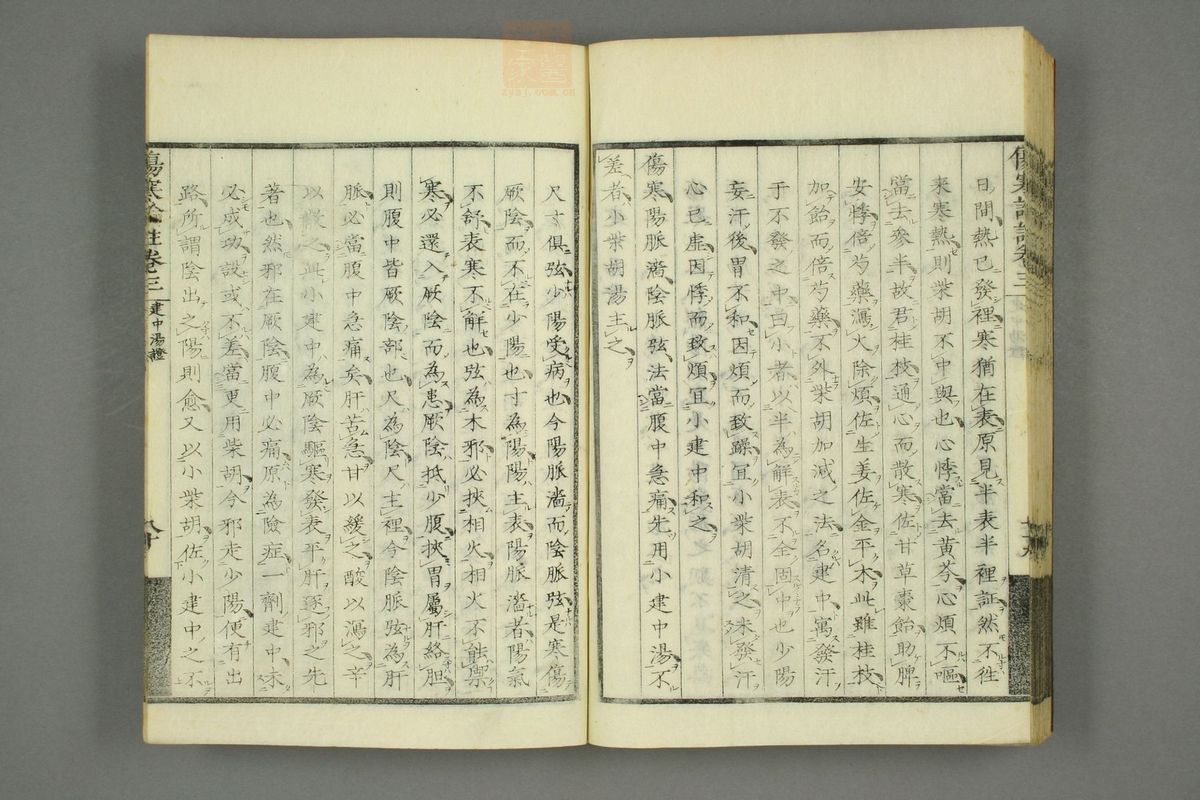 日間熱已發裡寒猶在表原見半表半裡証然不往
来寒熱則柴胡不中與也心悸當去黄芩心煩不嘔
當去參半故君桂枝通心而散寒佐甘草棗飴助脾
安悸倍芍藥瀉火除煩佐生姜佐金平木此雖桂枝
加飴而倍芍藥不外柴胡加減之法名建中寓發汗
于不發之中曰小者以半為解表不全固中也少陽
妄汗後胃不和因煩而致躁宜小柴胡清之未發汗
心已虚因悸而致煩宜小建中和之
傷寒陽脈濇陰脈弦法當腹中急痛先用小建中湯不
差者小柴胡湯主之
尺寸俱弦少陽受病也今陽脈濇而陰脈弦是寒傷
厥陰而不在少陽也寸為陽陽主表陽脈濇者陽氣
不舒表寒不解也弦為木邪必挾相火相火不能禦
寒必還入厥陰而為患厥陰抵少腹挾胃屬肝絡胆
則腹中皆厥陰部也尺為陰尺主裡今陰脈弦為肝
脈必當腹中急痛矣肝苦急甘以緩之酸以瀉之辛
以散之此小建中為厥陰驅寒發表平肝逐邪之先
著也然邪在厥陰腹中必痛原為險症一劑建中未
必成功設或不差當更用柴胡今邪走少陽便有出
路所謂陰出之陽則愈又以小柴胡佐小建中之不
傷寒論註卷三 建中湯證
zysj.com.cn